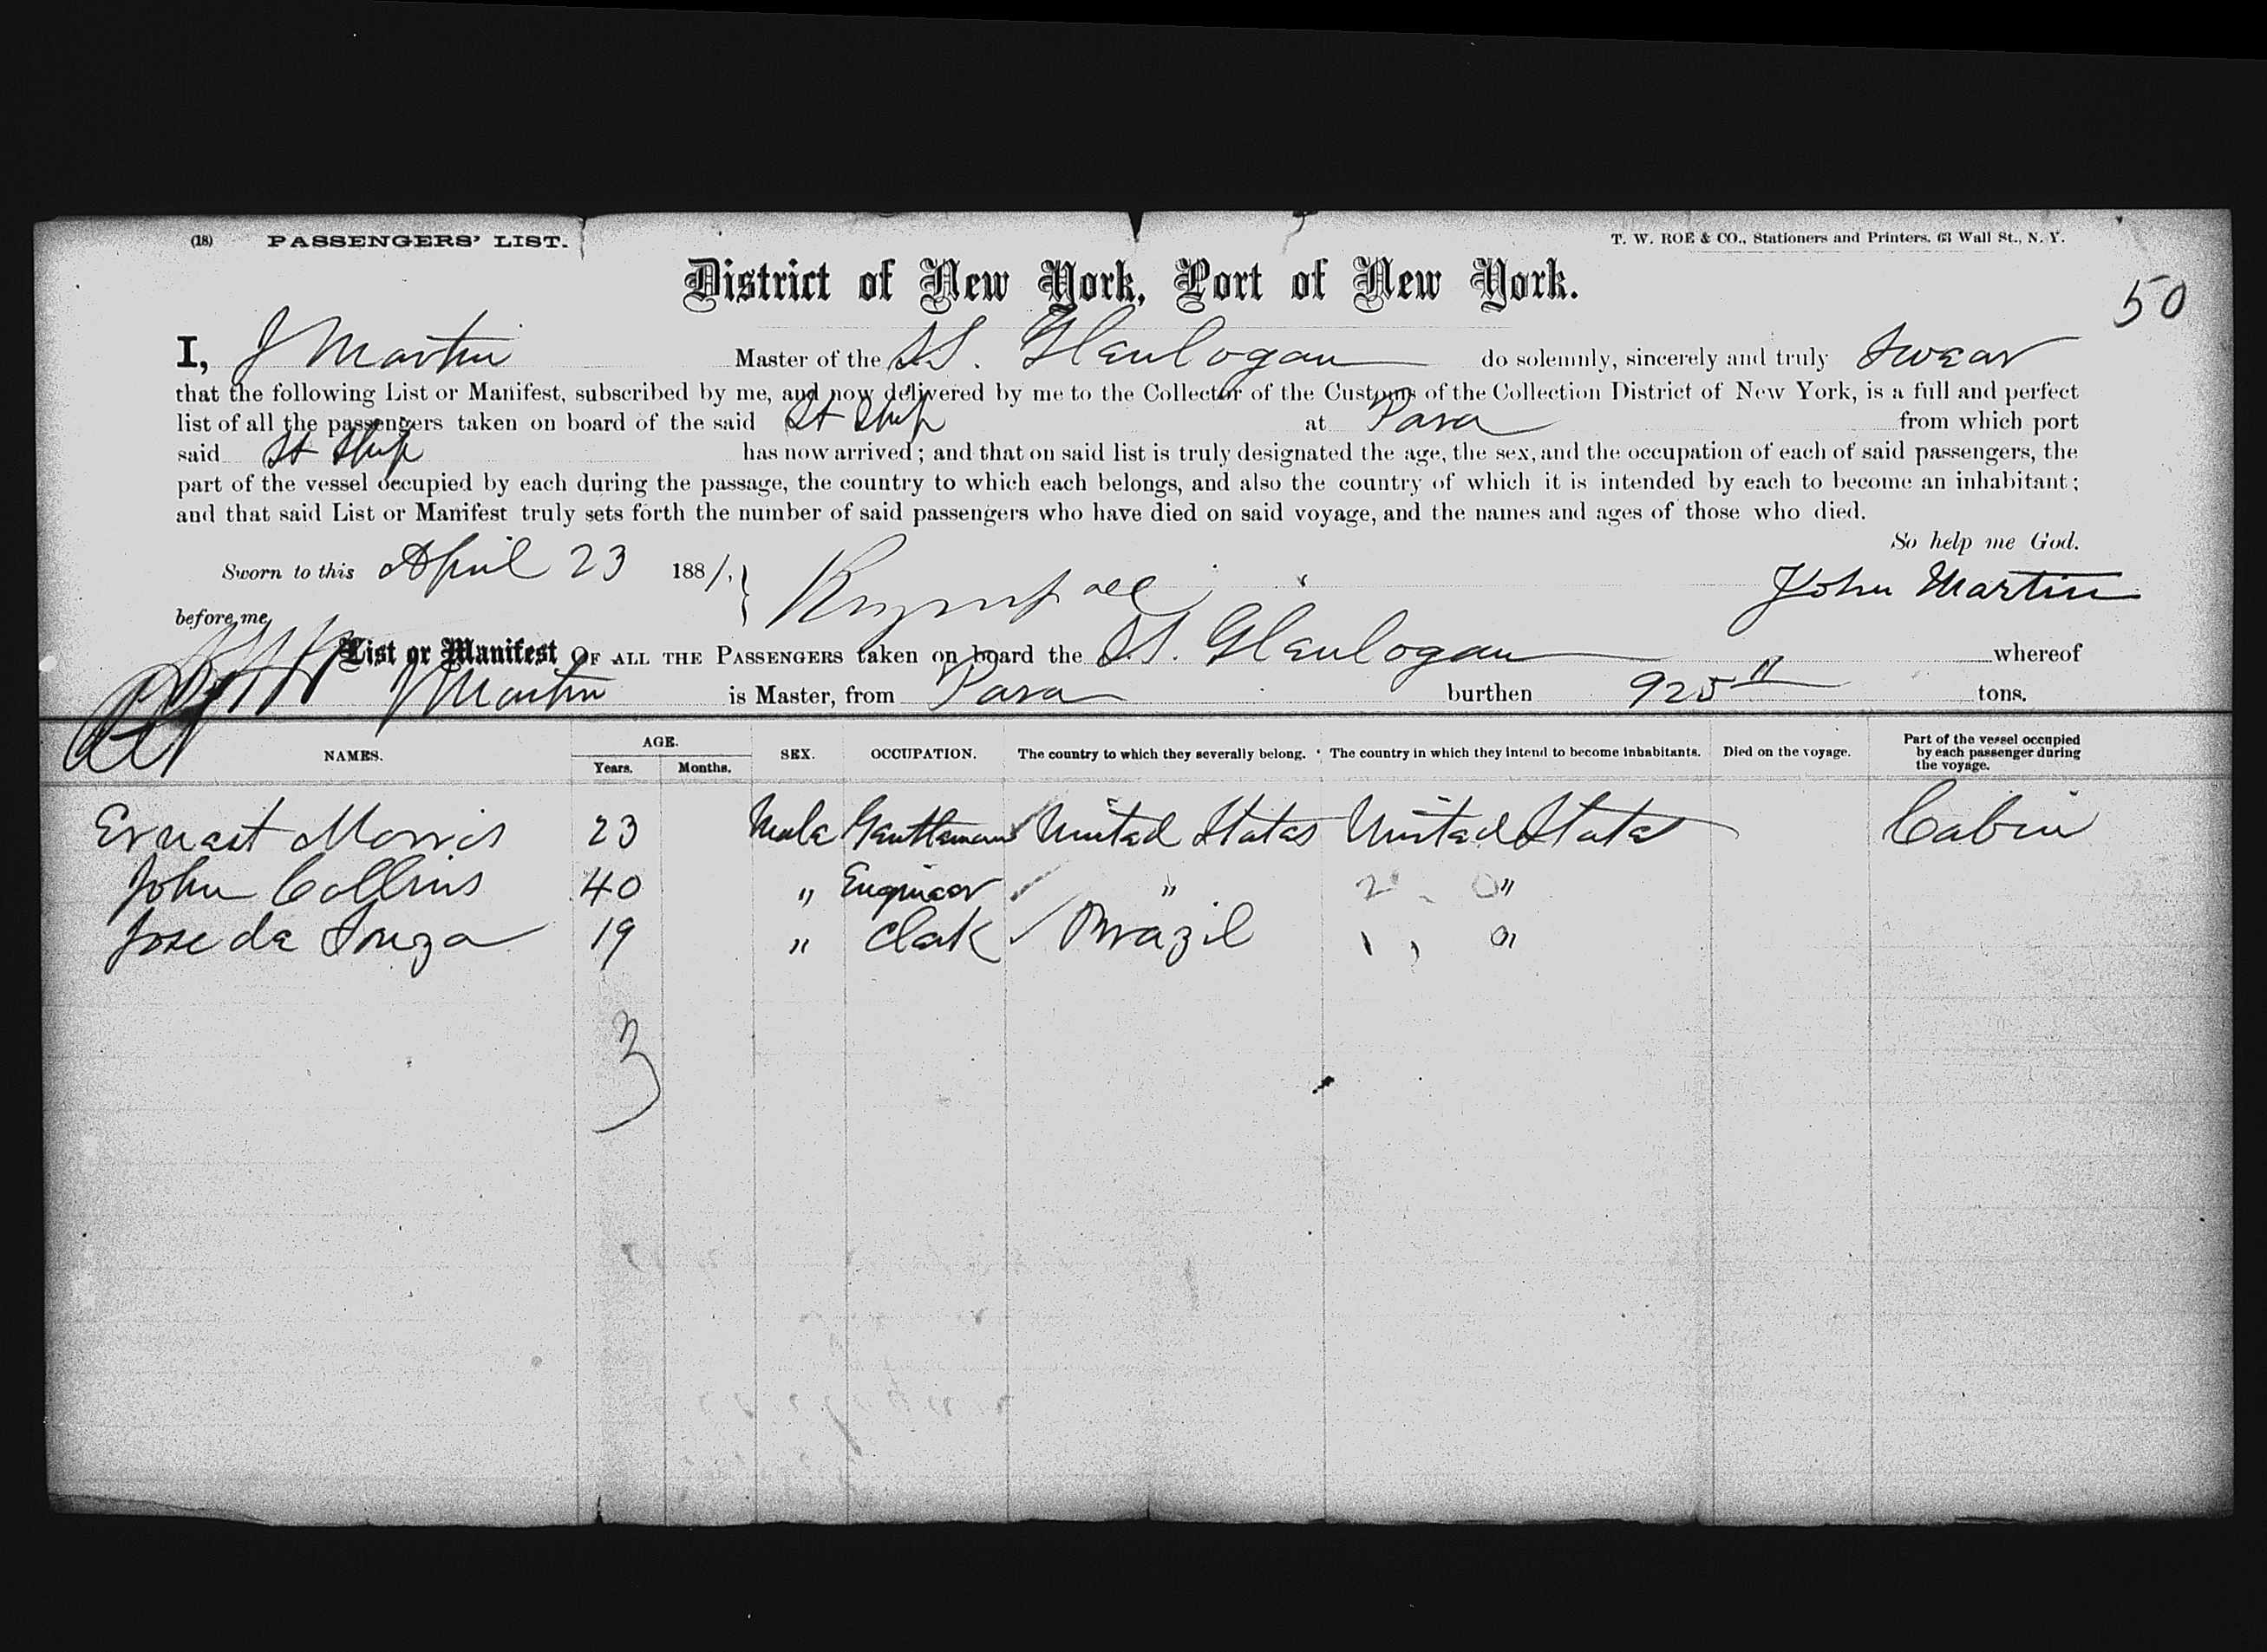 (18) PASSENGERS' LIST.
T. W. ROE & CO., Stationers and Printers, 63 Wall St., N. Y.
District of New York, Port of New York.
50
I, J Martin Master of the SS. Glenlogan do solemnly, sincerely and truly Swear
that the following List or Manifest, subscribed by me, and now delivered by me to the Collector of the Customs of the Collection District of New York, is a full and perfect
list of all the passengers taken on board of the said St Ship at Para from which port
said St Ship has now arrived; and that on said list is truly designated the age, the sex, and the occupation of each of said passengers, the
part of the vessel occupied by each during the passage, the country to which each belongs, and also the country of which it is intended by each to become an inhabitant;
and that said List or Manifest truly sets forth the number of said passengers who have died on said voyage, and the names and ages of those who died.
So help me God.
Sworn to this April 23 1881, John Martin
before me
List or Manifest OF ALL THE PASSENGERS taken on board the SS. Glenlogan whereof
J Martin is Master, from Para burthen 925 tons.
NAMES. AGE. Years. Months. SEX. OCCUPATION. The country to which they severally belong. The country in which they intend to become inhabitants. Died on the voyage. Part of the vessel occupied by each passenger during the voyage.
Ernest Morris 23 Male Gentleman United States United States Cabin
John Collins 40 " Engineer " 2 0 "
Jose da Souza 19 " Clerk Brazil 1 , "
3